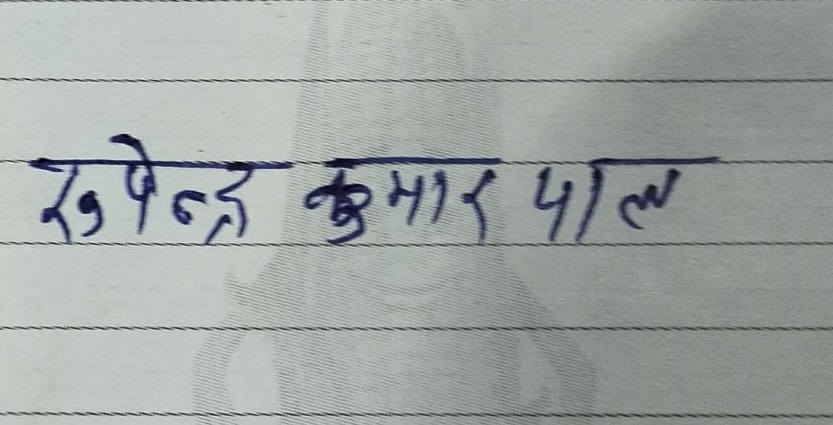 रूपेन्द्र कुमार पाल